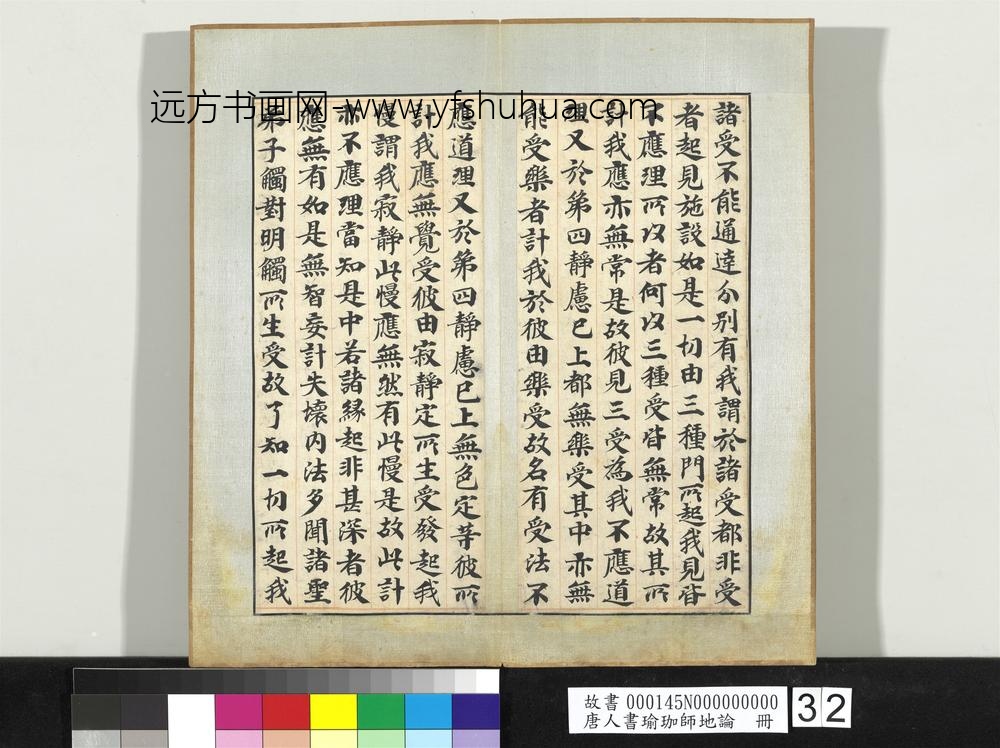 諸受不能通達分別有我謂於諸受都非受
者起見施設如是一切由三種門所起我見皆
不應理所以者何以三種受皆無常故其所
計我應亦無常是故彼見三受為我不應道
理又於第四靜慮已上都無樂受其中亦無
能受樂者計我於彼由樂受故名有受法不
應道理又於第四靜慮已上無色定等彼所
計我應無覺受彼由寂靜定所生受發起我
慢謂我寂靜此慢應無然有此慢是故此計
亦不應理當知是中若諸緣起非甚深者彼
應無有如是無智妄計失壞內法多聞諸聖
弟子觸對明觸所生受故了知一切所起我
远方书画网-www.yfshuhua.com
故書 000145N000000000
唐人書瑜珈師地論 冊
32